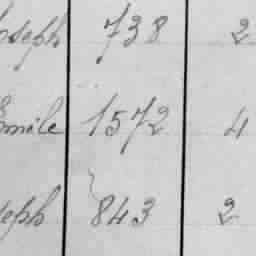 oseph 738 2
Emile 1572 4
seph 843 2